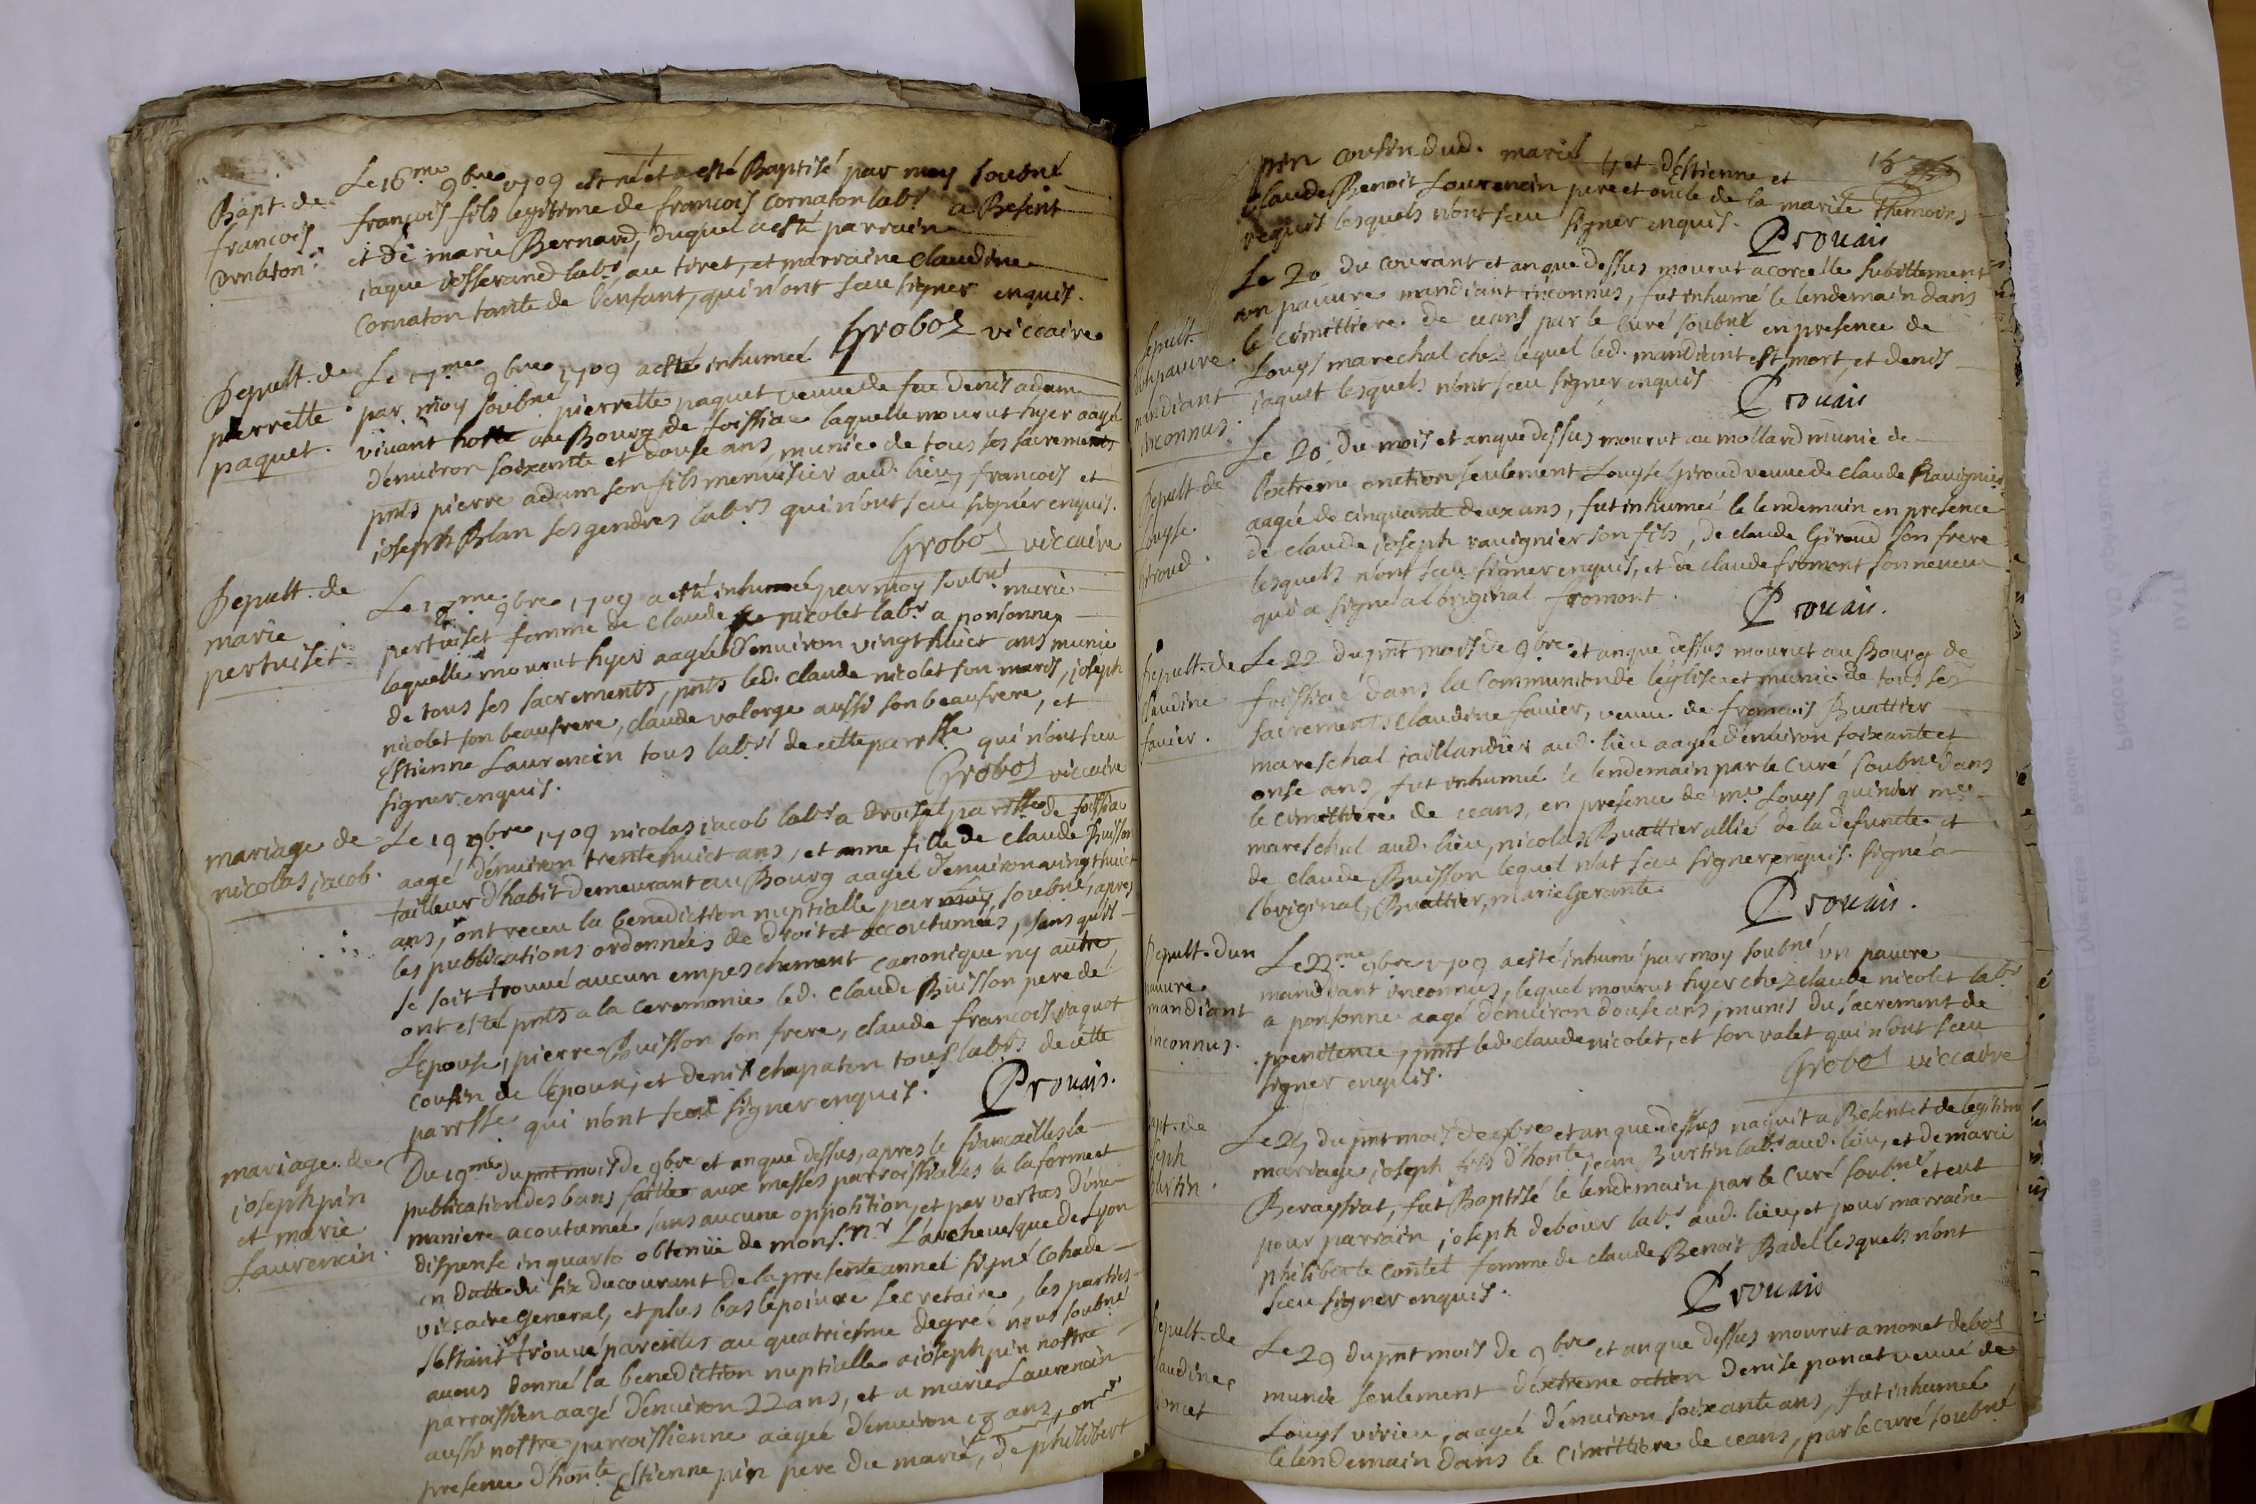 Bapt. de
francois
Cornaton.
Le 16.me 9bre 1709 est né et a esté Baptisé par moy soubné
françois fils legitime de francois Cornaton labr a Besent
et de marie Bernard, duquel a esté parrain
iaque tisserand labr au tiret, et marraine claudine
Cornaton tante de l'enfant, qui n'ont sceu signer enquis.
Groboz viccaire
Sepult. de
pierrette
paquet.
Le 17me 9bre 1709 a esté inhumeé
par moy soubné pierrette paquet veuve de feu denis adam
vivant hoste au Bourg de foissiac laquelle mourut hyer aageé
d'environ soixante et douse ans, munie de tous ses sacrements
pnts pierre adam son fils menuisier aud. lieu, francois et
ioseph Blan ses gendres labrs qui n'ont sceu signer enquis.
Groboz viccaire
Sepult. de
marie
pertuiset
Le 17me 9bre 1709 a esté inhumeé par moy soubné marie
pertuiset femme de claude nicolet labr a ponsonne
laquelle mourut hyer aageé d'environ vingt huict ans munie
de tous ses sacrements, pnts led. claude nicolet son marit, ioseph
nicolet son beaufrere, claude valorge aussi son beaufrere, et
Estienne Laurencin tous labrs de cette parrsse qui n'ont sceu
signer enquis.
Groboz viccaire
mariage de
nicolas iacob.
Le 19 9bre 1709 nicolas iacob labr a parrsse de foissia
aagé d'environ trente huict ans, et anne fille de claude Buisson
tailleur d'habit demeurant au Bourg aageé d'environ vingt huict
ans, ont receu la benediction nuptialle par moy soubné, apres
les publications ordonneés de droit et accoutumées, sans qu'il
se soit trouvé aucun empeschement canonique ny autre
ont esté pnts a la ceremonie led. claude Buisson pere de
l'epouse, pierre Buisson son frere, claude francois iaquot
cousin de l'epoux, et denis chapaton tous labrs de cette
parrsse qui n'ont sceu signer enquis.
Prouais.
mariage de
ioseph pin
et marie
Laurencin.
Du 19me du pnt mois de 9bre et an que dessus, apres le fiancailles la
publication des bans faitte aux messes parroissialles la forme et
maniere acoutumeé sans aucune oppotition, et par vertus d'une
dispense in quarto obtenüe de mons.nr L'archevesque de Lyon
en datte du six du courant de la presente anneé signé Cohade
viccaire General, et plus bas lepoivre secretaire, les parties
s'estant trouvé parentes au quatriesme degré. nous soubné
avons donné la benediction nuptialle a ioseph pin nostre
parroissien aagé d'environ 22 ans, et a marie Laurencin
aussi nostre parroissienne aageé d'environ 18 ans, en
presence d'honte Estienne pin pere du marié, de philibert
pin cousin dud. marié et d'Estienne et
Claude Benoit Laurencin pere et oncle de la marieé themoins
requis lesquels n'ont sceu signer enquis.
Prouais
Sepult.
d'un pauvre
mandiant
inconnus.
Le 20 du courant et an que dessus mourut a corcelle subittement
un pauvre mandiant inconnus, fut inhumé le lendemain dans
le cimettiere de ceans par le Curé soubné en presence de
Louys marechal chez lequel led. mandiant est mort, et denis
iaquet lesquels n'ont sceu signer enquis
Prouais
Sepult de
Louyse
Giroud.
Le 20 du mois et an que dessus mourut au mollard munie de
l'extreme onction seulement Louyse Giroud veuve de claude Ravignier
aageé de cinquante deux ans, fut inhumeé le lendemain en presence
de claude ioseph ravignier son fils, de claude Giroud son frere
lesquels n'ont sceu signer enquis, et de claude fromont son neveu
qui a signé a l'original fromont.
Prouais.
Sepult. de
Claudine
favier.
Le 22 du pnt mois de 9bre et an que dessus mourut au Bourg de
foissiac dans la Communion de l'eglise et munie de tous ses
sacrements claudine favier, veuve de francois Buattier
mareschal taillandier aud. lieu aageé d'environ soixante et
onse ans, fut inhumeé le lendemain par le Curé soubné dans
le cimettiere de ceans, en presence de me Louys me
mareschal aud. lieu, nicolas Buattier allié de la defuncte et
de claude Buisson lequel n'at sceu signer enquis. signé a
l'original, Buattier, marielgerante
Prouais.
Sepult. d'un
pauvre
mandiant
inconnus.
Le 23me 9bre 1709 a esté inhumé par moy soubné un pauvre
mandiant inconnus, lequel mourut hyer chez claude nicolet labr
a ponsonne aagé d'environ douse ans, munis du sacrement de
poenitence, pnts led. claude nicolet, et son valet qui n'ont sceu
signer enquis.
Groboz viccaire
Bapt. de
ioseph
Burtin.
Le 24 du pnt mois de 9bre et an que dessus naquit a Besentet de legitime
mariage ioseph fils d'honte jean Burtin labr aud. lieu, et de marie
Beraysiat, fut Baptisé le lendemain par le Curé soubné et eut
pour parrain ioseph debour labr aud. lieu, et pour marraine
philiberte Contet femme de claude Benoit Badel lesquels n'ont
sceu signer enquis.
Prouais
Sepult. de
claudine
poncet
Le 29 du pnt mois de 9bre et an que dessus mourut a monet debos
munie seulement d'extreme oction denise poncet veuve de
Louys virieu, aageé d'environ soixante ans, fut inhumeé
le lendemain dans le cimettiere de ceans, par le curé soubné